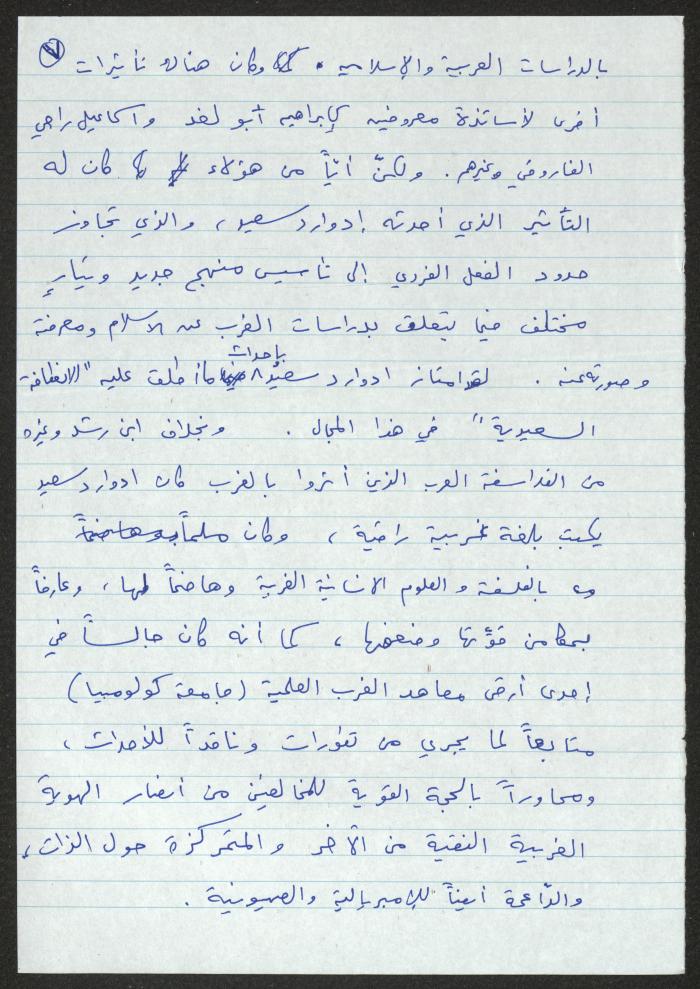 ٧
بالدراسات العربية والإسلامية. وكان هناك تأثيرات
أخرى لأساتذة معروفين كإبراهيم أبو لغد واسماعيل راجي
الفاروقي وغيرهم. ولكنّ أيّاً من هؤلاء لا كان له
التأثير الذي أحدثه إدوارد سعيد، والذي تجاوز
حدود الفعل الفردي إلى تأسيس منهج جديد وتيارٍ
مختلف فيما يتعلق بدراسات الغرب عن الاسلام ومعرفته
بإحداث
وصورته عنه. لقد امتاز ادوارد سعيد ما أطلق عليه "الانعطافة
السعيدية" في هذا المجال. وبخلاف ابن رشد وغيره
من الفلاسفة العرب الذين أثروا بالغرب كان ادوارد سعيد
يكتب بلغة غربية راقية، وكان ملماً
بالفلسفة والعلوم الانسانية الغربية وهاضماً لها، وعارفاً
بمكامن قوّتها وضعفها، كما أنه كان جالساً في
إحدى أرقى معاهد الغرب العلمية (جامعة كولومبيا)
متابعاً لما يجري من تطورات وناقداً للأحداث،
ومحاوراً بالحجة القوية للمخالفين من أنصار الهوية
الغربية النقية من الآخر والمتمركزة حول الذات،
والدّاعمة أيضاً للإمبريالية والصهيونية.